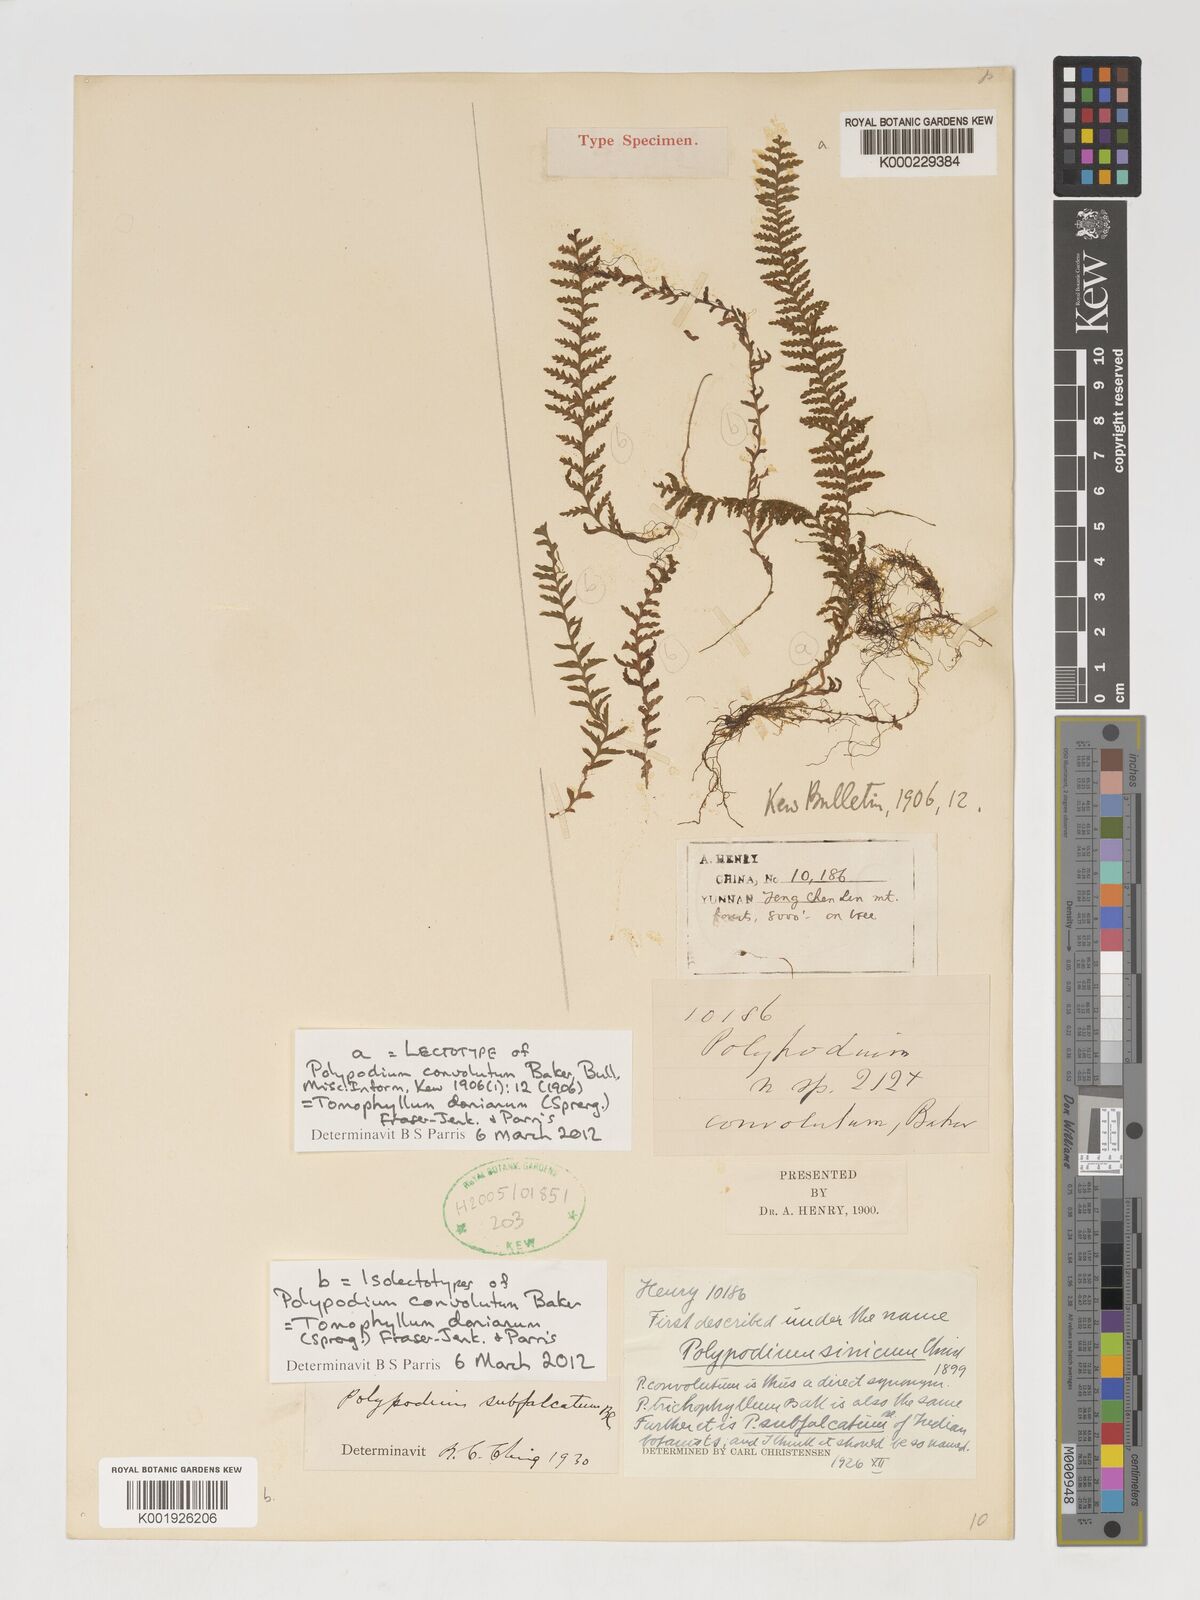 ROYAL BOTANIC GARDENS KEW
K000229384
a
Type Specimen.
b
b
b
b
a
Kew Bulletin, 1906, 12.
A. HENRY
CHINA, No 10,186
YUNNAN Feng Chen Lin mt.
forests, 8000'- on tree
10186
Polypodium
n sp. 212+
convolutum, Baker
PRESENTED
BY
DR. A. HENRY, 1900.
a = LECTOTYPE of
Polypodium convolutum Baker, Bull.
Misc. Inform, Kew 1906(1): 12 (1906)
= Tomophyllum donianum (Spreng.)
Fraser-Jenk. & Parris
Determinavit B S Parris 6 March 2012
ROYAL BOTANIC GARDENS
H2005/01851
203
KEW
b = Isolectotypes of
Polypodium convolutum Baker
= Tomophyllum donianum
(Spreng.) Fraser-Jenk. & Parris
Determinavit B S Parris 6 March 2012
Polypodium subfalcatum Bl
Determinavit R. C. Ching 1930
Henry 10186
First described under the name
Polypodium sinicum Christ
1899
P. convolutum is thus a direct synonym.
P. trichophyllum Bak is also the same
Further it is P. subfalcatum of Indian
botanists, and I think it should be so named.
DETERMINED BY CARL CHRISTENSEN
1926 XII
ROYAL BOTANIC GARDENS KEW
K001926206
b.
10
Kew
Royal Botanic Gardens
copyright reserved
0 1 2 3 4 5 6 7 8 9 10
cm
inches
centimetres
Density
Don Williams
M000948